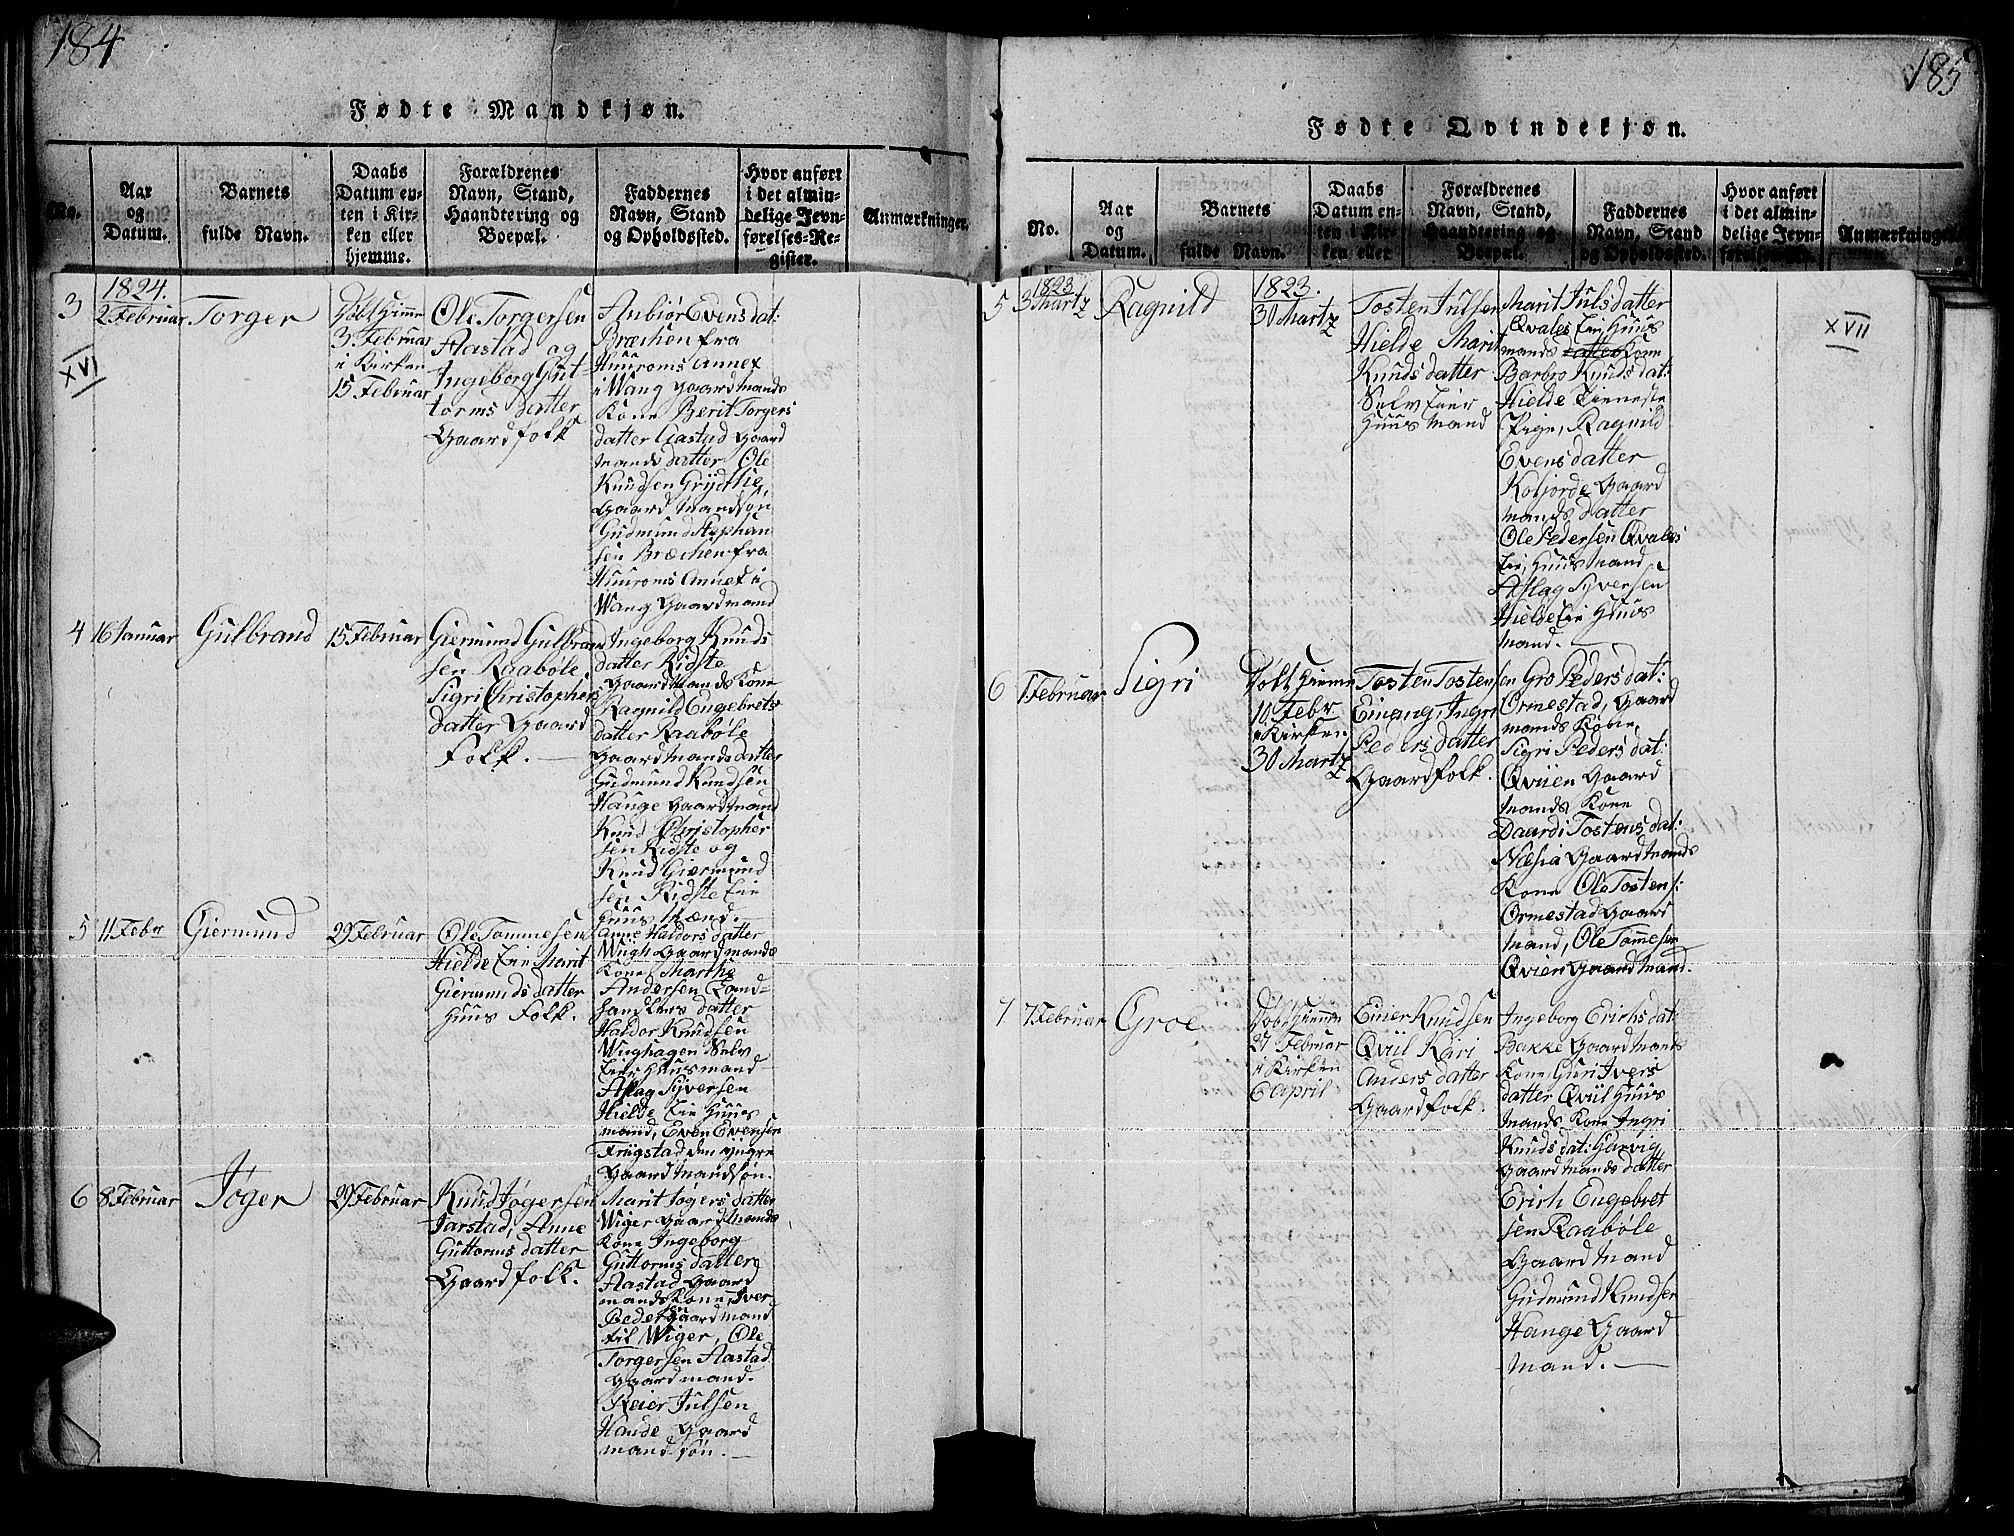 184
Fødte Mandkjøn.
No.
Aar
og
Datum.
Barnets
fulde Navn.
Daabs
Datum en-
ten i Kir-
ken eller
hjemme.
Forældrenes
Navn, Stand,
Haandtering og
Boepæl.
Faddernes
Navn, Stand
og Opholdssted.
Hvor anført
i det almin-
delige Jevn-
førelses-Re-
gister.
Anmærkninger.
3
XVI
1824.
2 Februar
Torger
Døbt hjemme
3 Februar
i Kirken
15 Februar
Ole Torgersen
Aastad og
Ingeborg Gut-
torms datter
Gaardfolk
Anbiør Evensdat:
Bræchen fra
Huuroms Annex
i Wang Gaardmands
Kone Berit Torgers
datter Aastad Gaard
mands datter Ole
Knudsen Grydhie,
Gaard Mandsøn
Gudmund Stephan
sen Bræchen fra
Huuroms Annex i
Wang Gaardmand
4
16 Januar
Gulbrand
15 Februar
Giermund Gulbrand
sen Raabøle
Sigri Christophers
datter Gaard
Folk.
Ingeborg Knuds
datter Ridste
Gaardmands Kone
Ragnild Engebrets
datter Raabøle
Gaardmands datter
Gudmund Knudsen
Hauge Gaardmand
Knud Christopher
sen Ridste og
Knud Giermund
sen Ridste Eie
Huus Mænd.
5
11 Febr
Giermund
29 Februar
Ole Tommesen
Hielde Eie Marit
Giermundsdatter
Huus Folk.
Anne Haldorsdatter
Wiigh Gaardmands
Kone Marthe
Andersen Land-
handlers datter
Haldor Knudsen
Wiighagen Selv
Eier Huusmand
Aslag Syversen
Hielde Eie Huus
mand, Even Evensen
Friigstad den yngre
Gaard Mandsøn.
6
8 Februar
Jøger
29 Februar
Knud Jøgersen
Jarstad, Anne
Guttorms datter
Gaardfolk.
Marit Jøgersdatter
Wiger Gaard Mands
Kone Ingeborg
Guttormsdatter
Aastad Gaard
mands Kone, Iver
Pedersen Gaardmand
til Wiger, Ole
Torgersen Aastad
Gaardmand.
Reier Julsen
Haude Gaard
mandsøn.
185
Fødte Qvindekjøn.
No.
Aar
og
Datum.
Barnets
fulde Navn.
Daabs
Datum en-
ten i Kir-
ken eller
Forældrenes
Navn, Stand,
Haandtering og
Boepæl.
Faddernes
Navn, Stand
og Opholdssted.
Hvor anført
i det almin-
delige Jevn-
førelses-Re-
Anmærkninger.
5
1823
3 Martz
Ragnild
1823.
30 Martz
Tosten Julsen
Hielde Marit
Knuds datter
Selv Eier
Huus Mand
Marit Julsdatter
Qvales Eie Huus
mands datter Kone
Barbro Knudsdat:
Hielde Tieneste
Pige, Ragnild
Evensdatter
Koljorde Gaard
mands datter
Ole Pedersen Qvales
Eie, Huus Mand
Aslag Syversen
Hielde Eie Huus
mand.
XVII
6
1 Februar
Sigri
Døbt hiemme
10 Febr.
i Kirken
30 Martz
Tosten Tosten
Einang, Ingri
Peders datter
Gaardfolk.
sen Gro Pedersdat:
Ormestad, Gaard
mands Kone,
Sigri Pedersdat:
Qviien Gaard
mands Kone
Daardi Tostensdat:
Næsia Gaardmands
Kone Ole Tostens:
Ormestad Gaard
mand, Ole Tomesen
Qvien Gaardmand.
7
7 Februar
Groe
Døbt hiemme
27 Februar
i Kirken
6 April
Einer Knudsen
Qviil Kari
Anders datter
Gaardfolk.
Ingeborg Erichsdat:
Bakke Gaardmands
Kone, Guri Ivers
datter Qviil Huus
mands Kone Ingri
Knudsdat: Garvig
Gaardmands datter
Erich Engebret
sen Raabøle
Gaardmand
Gudmund Knudsen
Hange Gaard
mand.